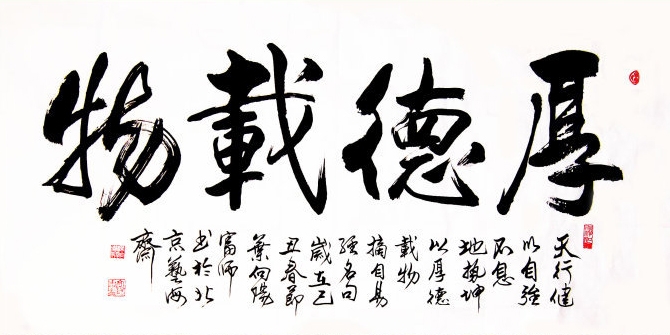 厚德載物
天行健
以自強
不息
地勢坤
以厚德
載物
摘自易
經名句
歲在己
丑春節
葉向陽
富師
书於北
京藝海
齋